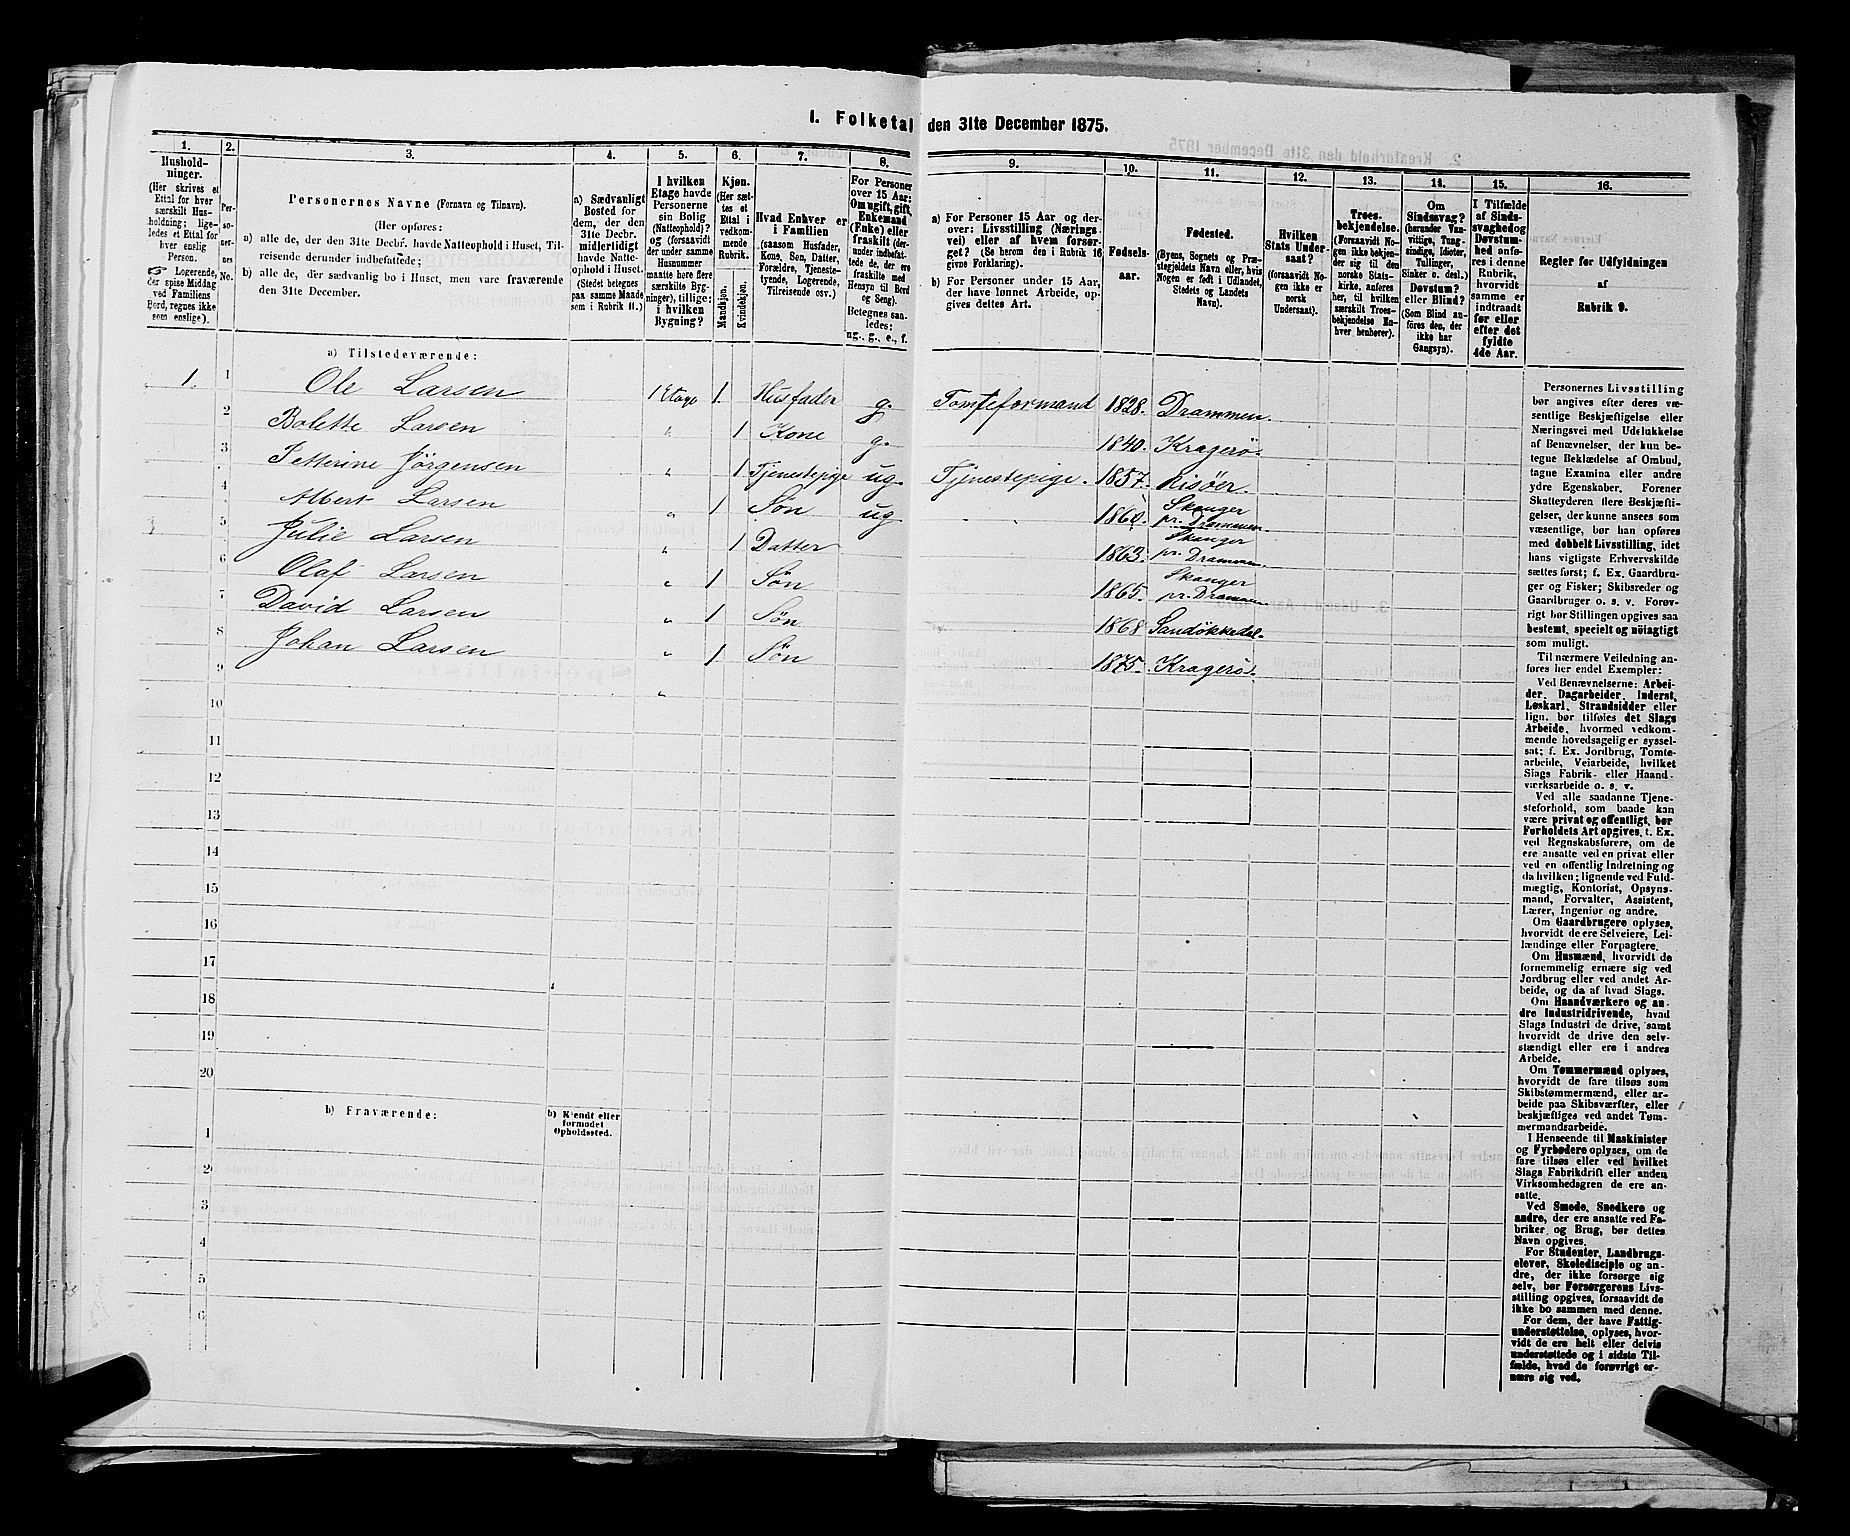 1. Folketal den 31te December 1875.
1.
Hushold-
ninger.
(Her skrives et
Ettal for hver
særskilt Hus-
holdning; lige-
ledes et Ettal for
hver enslig
Person.
Logerende,
der spise Middag
ved Familiens
Bord, regnes ikke
som enslige).
2.
Per-
so-
ner-
nes
No.
3.
Personernes Navne (Fornavn og Tilnavn).
(Her opføres:
a) alle de, der den 31te Decbr. havde Natteophold i Huset, Til-
reisende derunder indbefattede;
b) alle de, der sædvanlig bo i Huset, men vare fraværende
den 31te December.
4.
a) Sædvanligt
Bosted for
dem, der den
31te Decbr.
midlertidigt
havde Natte-
ophold i Huset.
(Stedet betegnes
paa samme Maade
som i Rubrik 11.)
5.
I hvilken
Etage havde
Personerne
sin Bolig
(Natteophold)?
og (forsaavidt
der under samme
Husnummer
maatte høre flere
særskilte Byg-
ninger), tillige:
i hvilken
Bygning?
6.
Kjøn.
(Her sæt-
tes et
Ettal i
vedkom-
mende
Rubrik.
Mandkjøn.
Kvindekjøn.
7.
Hvad Enhver er
i Familien
(saasom Husfader,
Kone, Søn, Datter,
Forældre, Tjeneste-
tyende, Logerende,
Tilreisende osv.)
8.
For Personer
over 15 Aar:
Om ugift, gift,
Enkemand
(Enke) eller
fraskilt (der-
under indbefat-
tede de, der ere
fraskilte med
Hensyn til Bord
og Seng).
Betegnes saa-
ledes:
ug., g., e., f.
9.
a) For Personer 15 Aar og der-
over: Livsstilling (Nærings-
vei) eller af hvem forsør-
get? (Se herom den i Rubrik 16
givne Forklaring).
b) For Personer under 15 Aar,
der have lønnet Arbeide, op-
gives dettes Art.
10.
Fødsels-
aar.
11.
Fødested.
(Byens, Sognets og Præ-
stegjeldets Navn eller, hvis
Nogen er født i Udlandet,
Stedets og Landets
Navn).
12.
Hvilken
Stats Under-
saat?
(forsaavidt No-
gen ikke er
norsk
Undersaat).
13.
Troes-
bekjendelse.
(Forsaavidt No-
gen ikke bekjen-
der sig til den
norske Stats-
kirke, anføres
her, til hvilken
særskilt Troes-
bekjendelse En-
hver henhører).
14.
Om
Sindssvag?
(herunder Van-
vittige, Tung-
sindige, Idioter,
Tullinger,
Sinker o. desl.)
Døvstum?
eller Blind?
(Som Blind an-
føres den, der
ikke har
Gangsyn).
15.
I Tilfælde
af Sinds-
svaghed og
Døvstum-
hed anfø-
res i denne
Rubrik,
hvorvidt
samme er
indtraadt
før eller
efter det
fyldte
4de Aar.
16.
Regler for Udfyldningen
af
Rubrik 9.
a) Tilstedeværende:
1. 1 Ole Larsen 1 Etage 1. Husfader g. Tomteformand 1828. Drammen.
2 Bolette Larsen " 1 Kone g. 1840. Kragerø.
3 Petterine Jörgensen " 1 Tjenestepige ug. Tjenestepige. 1857. Risøer.
4 Albert Larsen " 1 Søn ug 1860. Skouger
pr. Drammen
5 Julie Larsen " 1 Datter 1863. Skouger
pr. Drammen.
6 Olaf Larsen " 1 Søn 1865. Skouger
pr. Drammen
7 David Larsen " 1 Søn 1868 Sandøkkedal.
8 Johan Larsen " 1. Søn 1875. Kragerø.
9 "
10
11
12
13
14
15
16
17
18
19
20
b) Fraværende:
b) Kjendt eller
formodet
Opholdssted.
1
2
3
4
5
6
Personernes Livsstilling
bør angives efter deres væ-
sentlige Beskjæftigelse eller
Næringsvei med Udelukkelse
af Benævnelser, der kun be-
tegne Beklædelse af Ombud,
tagne Examina eller andre
ydre Egenskaber. Forener
Skatteyderen flere Beskjæfti-
gelser, der kunne ansees som
væsentlige, bør han opføres
med dobbelt Livsstilling, idet
hans vigtigste Erhvervskilde
sættes først; f. Ex. Gaardbru-
ger og Fisker; Skibsreder og
Gaardbruger o. s. v. Forøv-
rigt bør Stillingen opgives saa
bestemt, specielt og nöiagtigt
som muligt.
Til nærmere Veiledning an-
føres her endel Exempler:
Ved Benævnelserne: Arbei-
der, Dagarbeider, Inderst,
Løskarl, Strandsidder eller
lign. bør tilføies det Slags
Arbeide, hvormed vedkom-
mende hovedsagelig er syssel-
sat; f. Ex. Jordbrug, Tomte-
arbeide, Veiarbeide, hvilket
Slags Fabrik- eller Haand-
værksarbeide o. s. v.
Ved alle saadanne Tjene-
steforhold, som baade kan
være privat og offentligt, bør
Forholdets Art opgives, t. Ex.
ved Regnskabsførere, om de
ere ansatte ved en privat eller
ved en offentlig Indretning og
da hvilken; lignende ved Fuld-
mægtig, Kontorist, Opsyns-
mand, Forvalter, Assistent,
Lærer, Ingeniør og andre.
Om Gaardbrugere oplyses,
hvorvidt de ere Selveiere, Lei-
lændinge eller Forpagtere.
Om Husmænd, hvorvidt de
fornemmelig ernære sig ved
Jordbrug eller ved andet Ar-
beide, og da af hvad Slags.
Om Haandværkere og an-
dre Industridrivende, hvad
Slags Industri de drive, samt
hvorvidt de drive den selv-
stændigt eller ere i andres
Arbeide.
Om Tømmermænd oplyses,
hvorvidt de fare tilsøs som
Skibstømmermænd, eller ar-
beide paa Skibsværfter, eller
beskjæftiges ved andet Tøm-
mermandsarbeide.
I Henseende til Maskinister
og Fyrbødere oplyses, om de
fare tilsøs eller ved hvilket
Slags Fabrikdrift eller anden
Virksomhedsgren de ere an-
satte.
Ved Smede, Snedkere og
andre, der ere ansatte ved Fa-
briker og Brug, bør dettes
Navn opgives.
For Studenter, Landbrugs-
elever, Skoledisciple og an-
dre, der ikke forsørge sig
selv, bør Forsørgerens Livs-
stilling opgives, forsaavidt de
ikke bo sammen med denne.
For dem, der have Fattig-
understøttelse, oplyses, hvor-
vidt de ere helt eller delvis
understøttede og i sidste Til-
fælde, hvad de forøvrigt er-
nære sig ved.